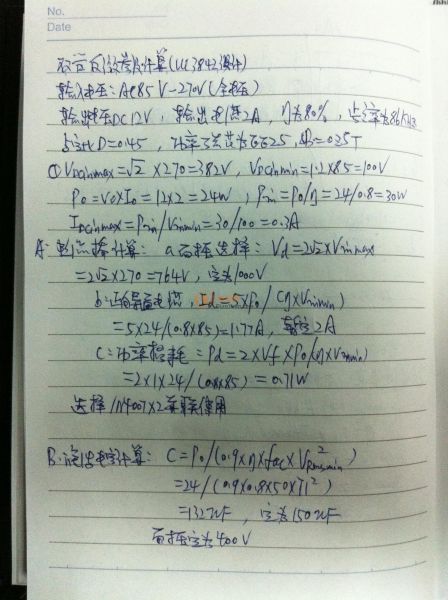 No.
Date
反激 计算(UC3842设计)
输入电压:AC85V-270V(全电压)
输出电压DC12V,输出电流2A,η为80%,占空率为86KHz
占空比D=0.45,功率 芯为EE25,ΔB=0.25T
① VDCinmax=√2×270=382V,VDCinmin=1.2×85=100V
Po=Vo×Io=12×2=24W,Pin=Po/η=24/0.8=30W
IDCinmax=Pin/Vinmin=30/100=0.3A
A: 选择计算:a 耐压选择:Vd=2√2×Vinmax
=2√2×270=764V,定为1000V
b:正向 电流,Id=5×Po/(η×Vinmin)
=5×24/(0.8×85)=1.77A,定2A
C:功率损耗:Pd=2×Vf×Po/(η×Vinmin)
=2×1×24/(0.8×85)=0.71W
选择1N4007×2 联使用
B. 电容计算:C=Po/(0.9×η×fac×VRmsmin²)
=24/(0.9×0.8×50×71²)
=132uF,定为150uF
耐压定为400V